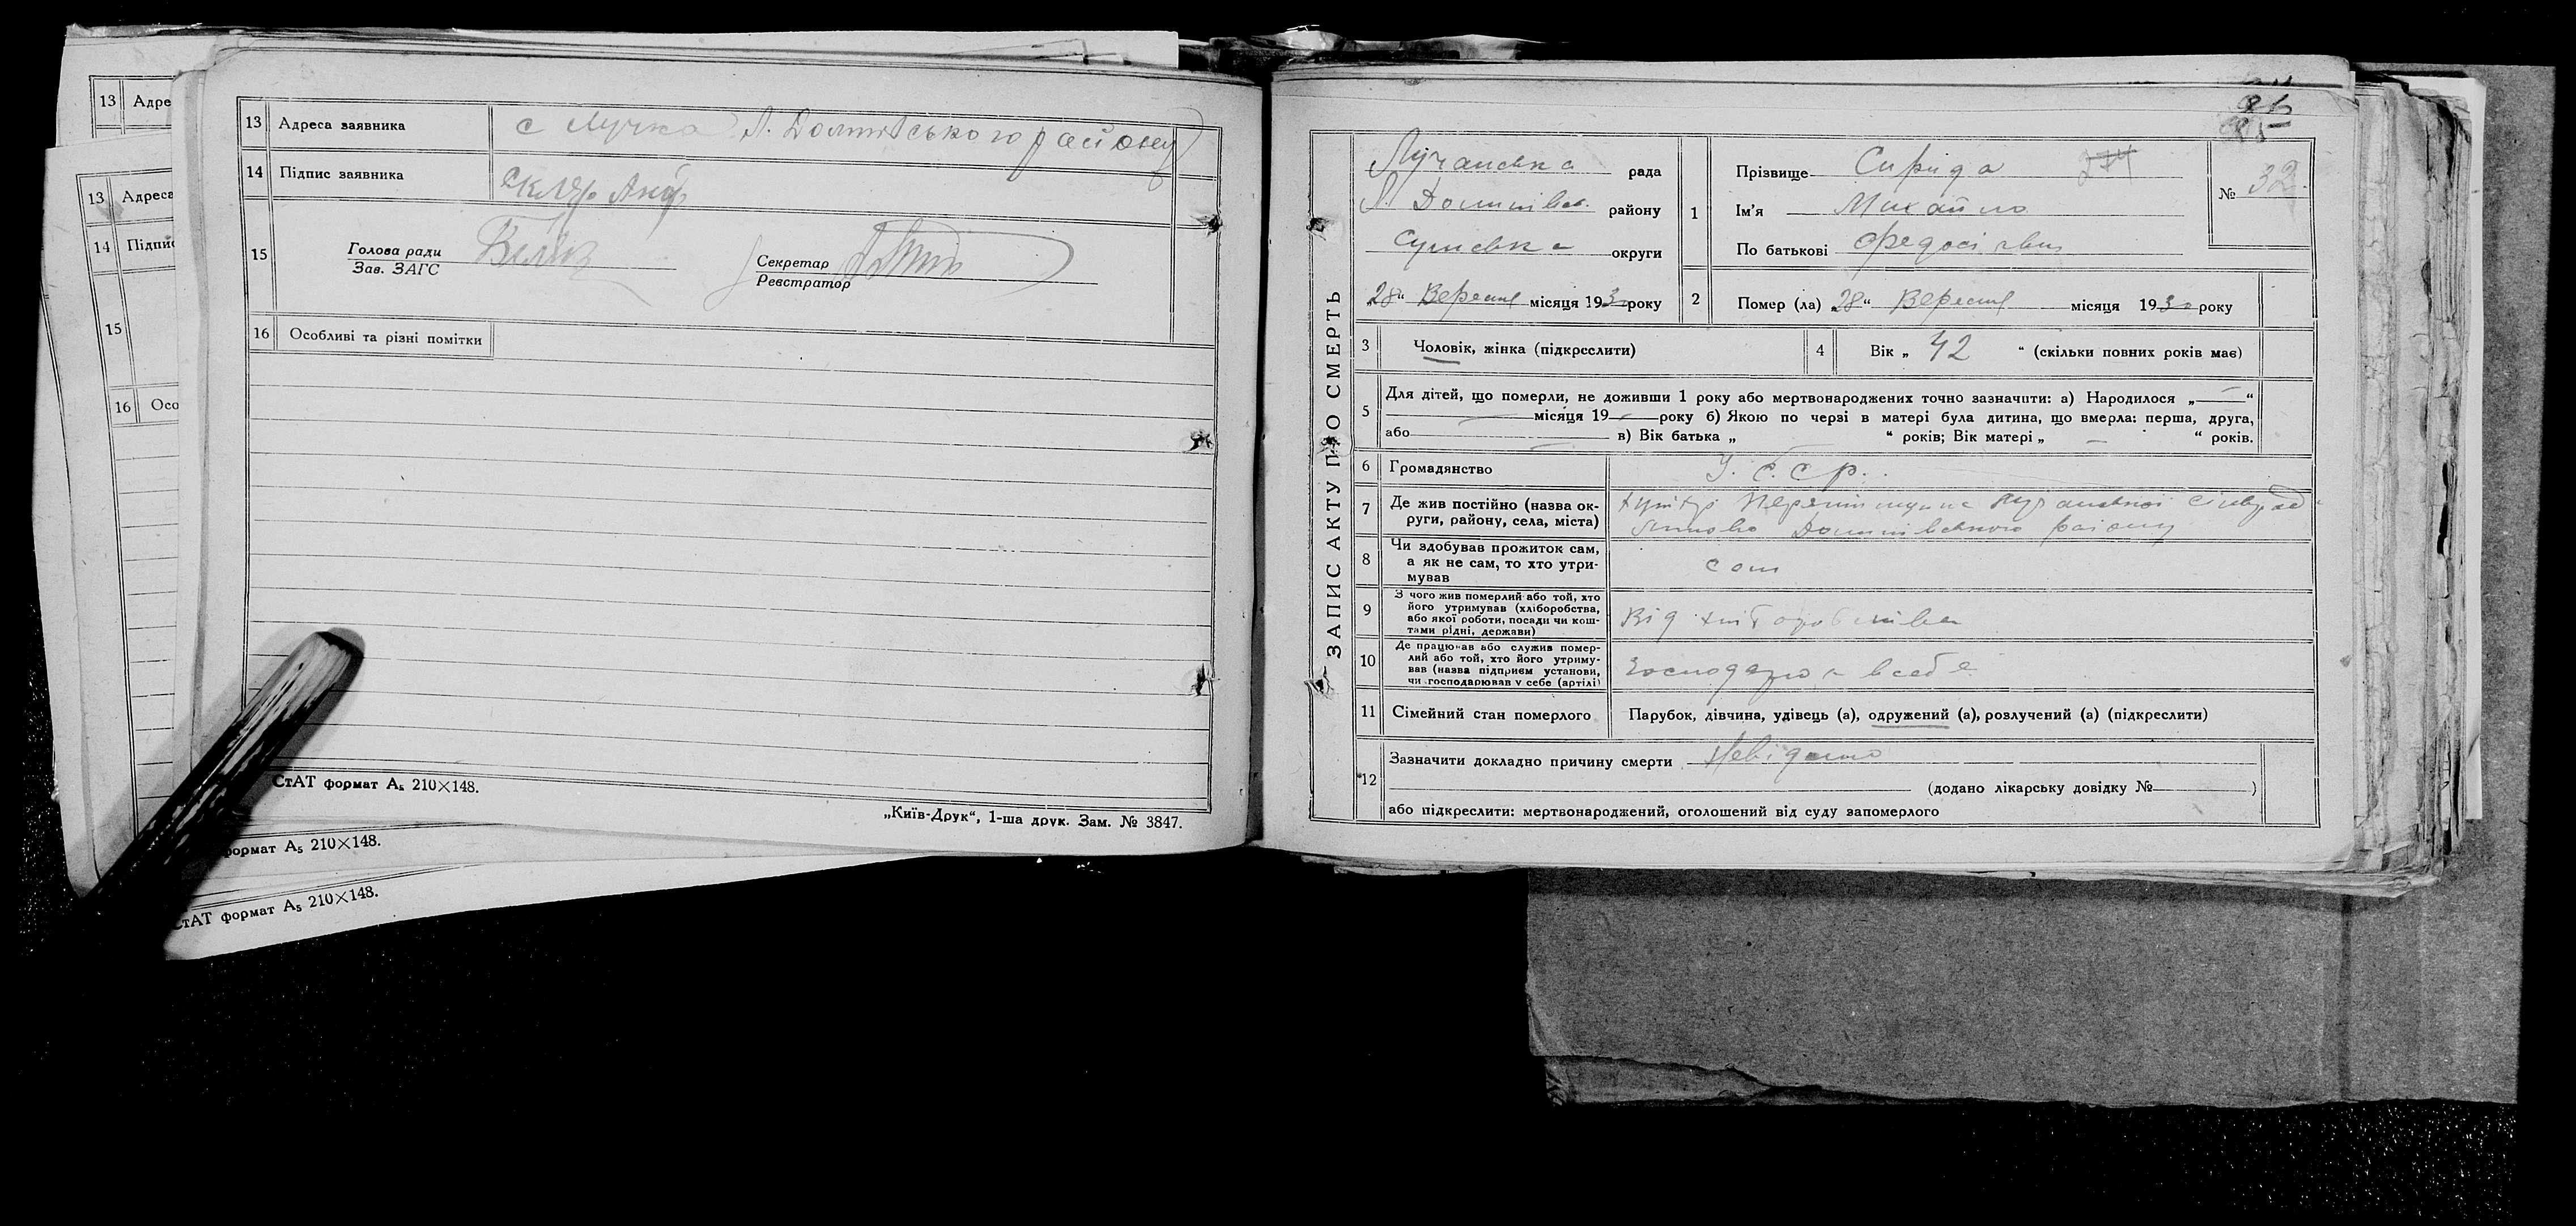 13 Адре
13 Адреса
14 Підпис
15
16 Осо
формат А₅ 210×148.
СтАТ формат А₅ 210×148.
13 Адреса заявника с Лучка Л. Долинського району
14 Підпис заявника
15 Голова ради
Зав. ЗАГС
Секретар
Реєстратор
16 Особливі та різні помітки
СтАТ формат А₅ 210×148.
„Київ-Друк“, 1-ша друк. Зам. № 3847.
ЗАПИС АКТУ ПРО СМЕРТЬ
Лучанська рада
Л. Долинівськ. району
Сумська округи
„28“ Вересня місяця 1930 року
1 Прізвище Сирида 274
Ім'я Михайло
По батькові Федосієвич
№ 32
2 Помер (ла) „28“ Вересня місяця 1930 року
3 Чоловік, жінка (підкреслити)
4 Вік „ 42 “ (скільки повних років має)
5 Для дітей, що померли, не доживши 1 року або мертвонароджених точно зазначити: а) Народилося „ — “
місяця 19 — року б) Якою по черзі в матері була дитина, що вмерла: перша, друга,
або — в) Вік батька „ “ років; Вік матері „ — “ років.
6 Громадянство У.С.С.р.
7 Де жив постійно (назва ок-
руги, району, села, міста)
хутір Лучанської сільрад
Липово Долинівського району
8 Чи здобував прожиток сам,
а як не сам, то хто утри-
мував
сам
9 З чого жив померлий або той, хто
його утримував (хліборобства,
або якої роботи, посади чи кош-
тами рідні, держави)
Від хліборобства
10 Де працював або служив помер-
лий або той, хто його утриму-
вав (назва підприєм установи,
чи господарював у себе (артілі)
господарював в себе
11 Сімейний стан померлого Парубок, дівчина, удівець (а), одружений (а), розлучений (а) (підкреслити)
12 Зазначити докладно причину смерти Невідомо
(додано лікарську довідку № )
або підкреслити: мертвонароджений, оголошений від суду запомерлого